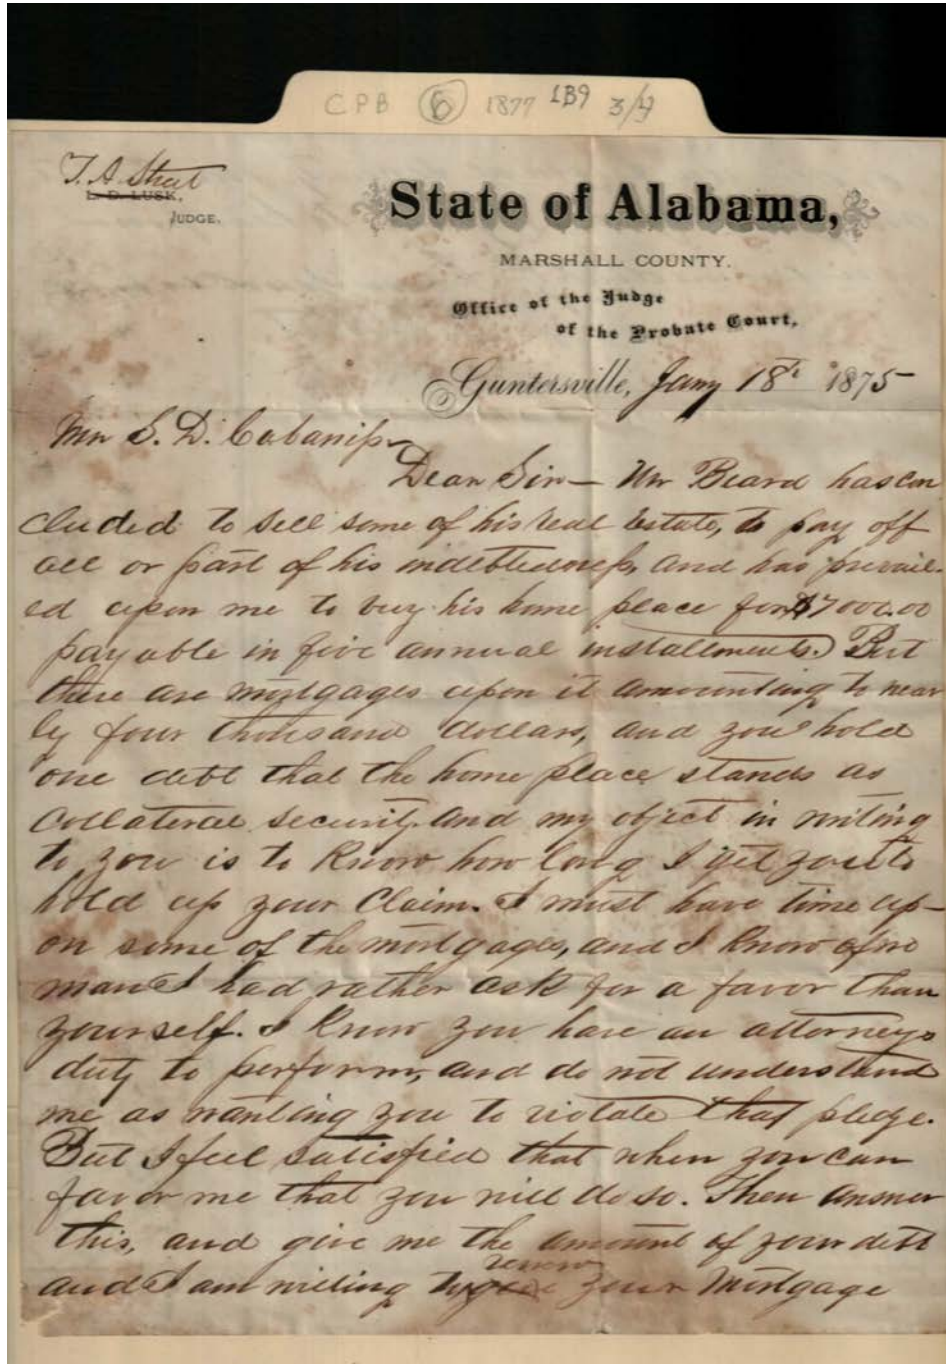 CPB 6 1877 1B9 3/4
T. A. Street
L. D. LUSK,
JUDGE.
State of Alabama,
MARSHALL COUNTY.
Office of the Judge
of the Probate Court,
Guntersville, Jany 18th 1875
Mr S. D. Cabaniss
Dear Sir — Mr Beard has con
cluded to sell some of his real Estate, to pay off
all or part of his indebtedness, and has prevail-
ed upon me to buy his home place for $7000.00
payable in five annual installments. But
there are mortgages upon it amounting to near
ly four thousand dollars, and you hold
one debt that the home place stands as
Collateral security. and my object in writing
to you is to Know how long I get you to
hold up your Claim. I must have time up-
on some of the mortgages, and I Know of no
man I had rather ask for a favor than
yourself. I Know you have an attorneys
duty to perform, and do not understand
me as wanting you to violate that pledge.
But I feel satisfied that when you can
favor me that you will do so. Then answer
this, and give me the amount of your debt
and I am willing to renew your Mortgage